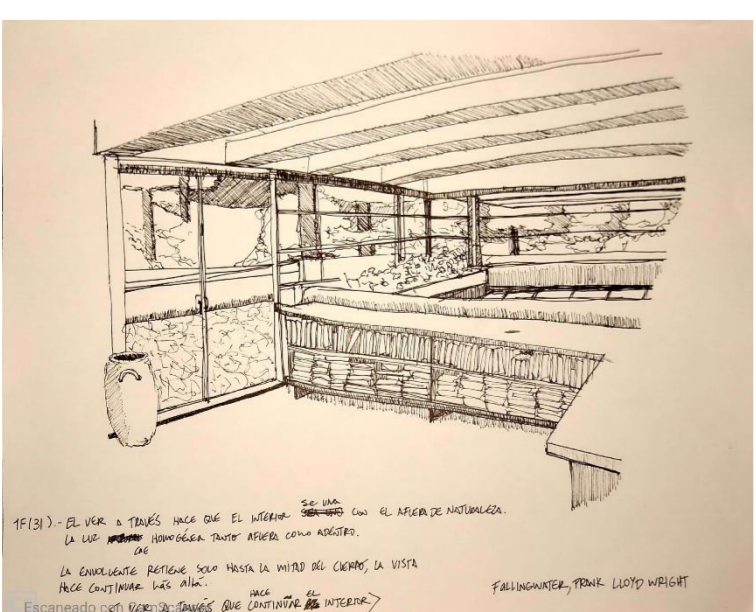 1F(31).- EL VER A TRAVÉS HACE QUE EL INTERIOR SE UNA CON EL AFUERA DE NATURALEZA.
LA LUZ CAE HOMOGÉNEA TANTO AFUERA COMO ADENTRO.
LA ENVOLVENTE RETIENE SOLO HASTA LA MITAD DEL CUERPO, LA VISTA
HACE CONTINUAR MÁS ALLÁ.
VER A TRAVÉS QUE HACE CONTINUAR EL INTERIOR
FALLINGWATER, FRANK LLOYD WRIGHT
Escaneado con